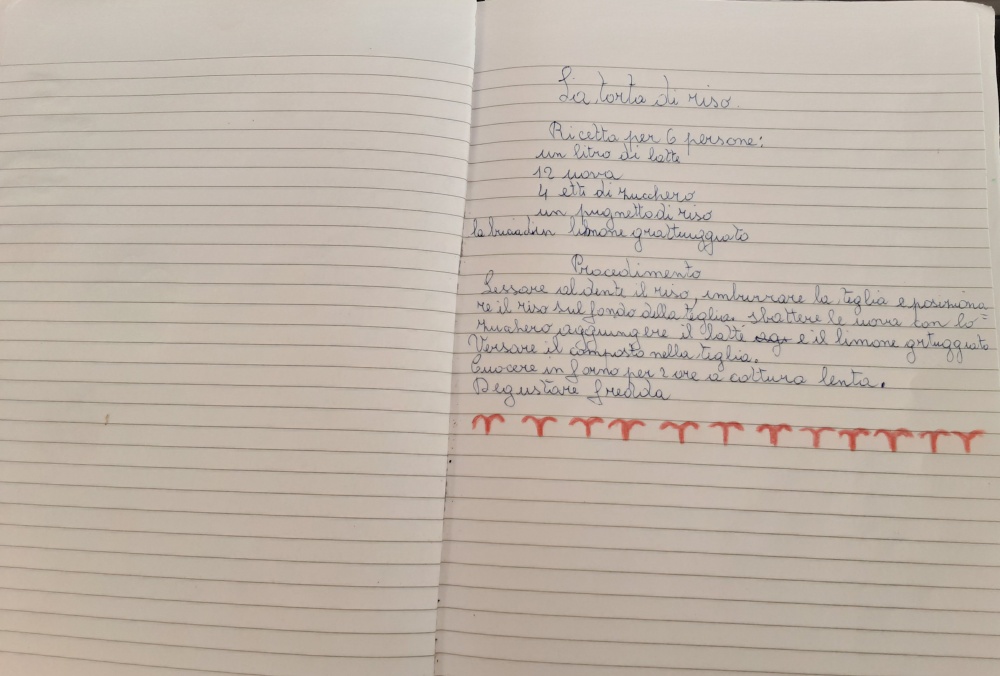 La torta di riso.
Ricetta per 6 persone:
un litro di latte
12 uova
4 etti di zucchero
un pugnetto di riso
la buccia di un limone grattuggiato
Procedimento
Lessare al dente il riso, imburrare la teglia e posiziona
re il riso sul fondo della teglia. sbattere le uova con lo=
zucchero, aggiungere il latte e il limone grtuggiato
Versare il composto nella teglia.
Cuocere in forno per 2 ore a cottura lenta.
Degustare fredda